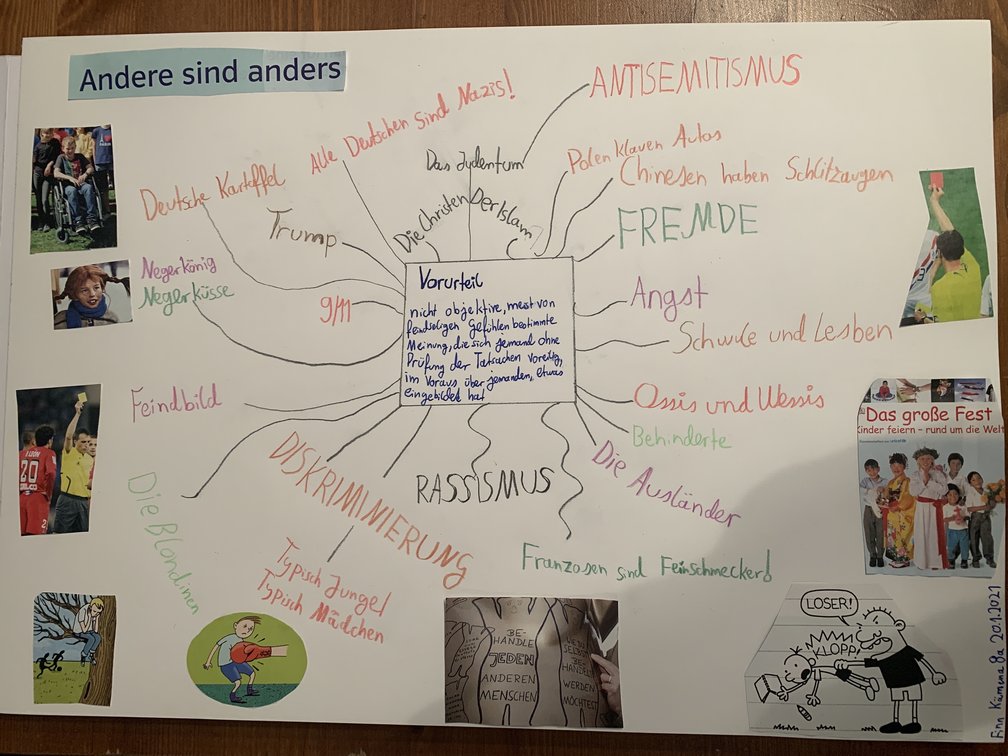 Andere sind anders
Alle Deutschen sind Nazis!
ANTISEMITISMUS
Das Judentum
Polen klauen Autos
Chinesen haben Schlitzaugen
Deutsche Kartoffel
Die Christen
Der Islam
Trump
FREMDE
Negerkönig
Negerküsse
9/11
Angst
Schwule und Lesben
Vorurteil
nicht objektive, meist von
feindseligen Gefühlen bestimmte
Meinung, die sich jemand ohne
Prüfung der Tatsachen voreilig,
im Voraus über jemanden, etwas
gebildet hat
Feindbild
Ossis und Wessis
Behinderte
Die Ausländer
DISKRIMINIERUNG
RASSISMUS
Die Blondinen
Franzosen sind Feinschmecker!
Typisch Junge!
Typisch Mädchen
20
2
Das große Fest
Kinder feiern - rund um die Welt
BE-
HANDLE
JEDEN
ANDEREN
MENSCHEN
SELBST
BE-
HANDELT
WERDEN
MÖCHTEST
LOSER!
KLOPP!
8a 20.1.2021